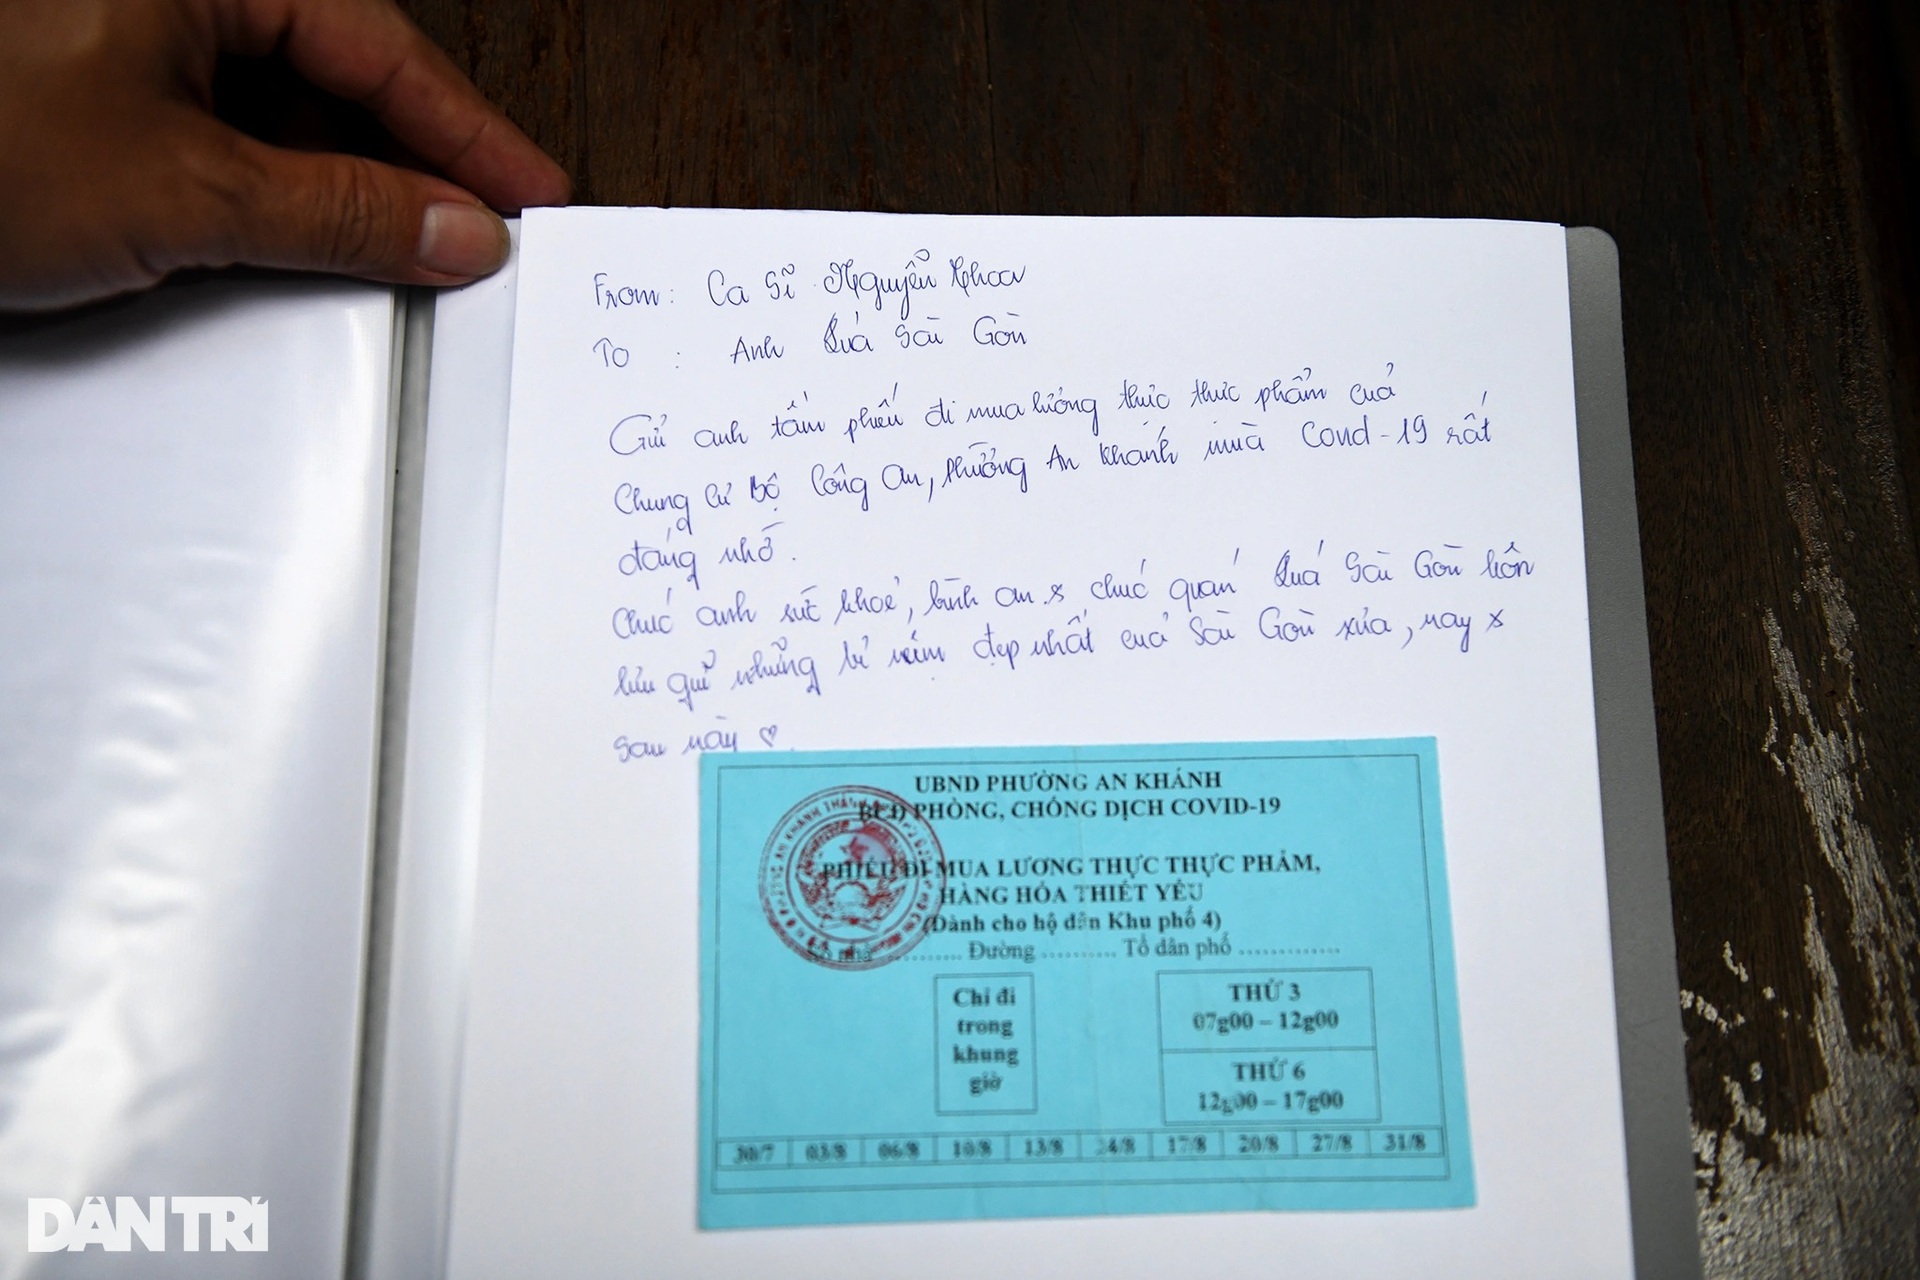 From: Ca Sĩ Nguyễn Kha
To : Anh Quá Sài Gòn
Gửi anh tấm phiếu đi mua lương thực thực phẩm của
Chung cư Bộ Công An, phường An Khánh mùa Covid-19 rất
đáng nhớ.
Chúc anh sức khoẻ, bình an & chúc quán Quá Sài Gòn luôn
lưu giữ những kỉ niệm đẹp nhất của Sài Gòn xưa, nay &
sau này ♡.
UBND PHƯỜNG AN KHÁNH
BCĐ PHÒNG, CHỐNG DỊCH COVID-19
PHIẾU ĐI MUA LƯƠNG THỰC THỰC PHẨM,
HÀNG HÓA THIẾT YẾU
(Dành cho hộ dân Khu phố 4)
Số nhà ............ Đường .......... Tổ dân phố ..............
Chỉ đi
trong
khung
giờ
THỨ 3
07g00 – 12g00
THỨ 6
12g00 – 17g00
30/7 03/8 06/8 10/8 13/8 24/8 17/8 20/8 27/8 31/8
DÂN TRÍ